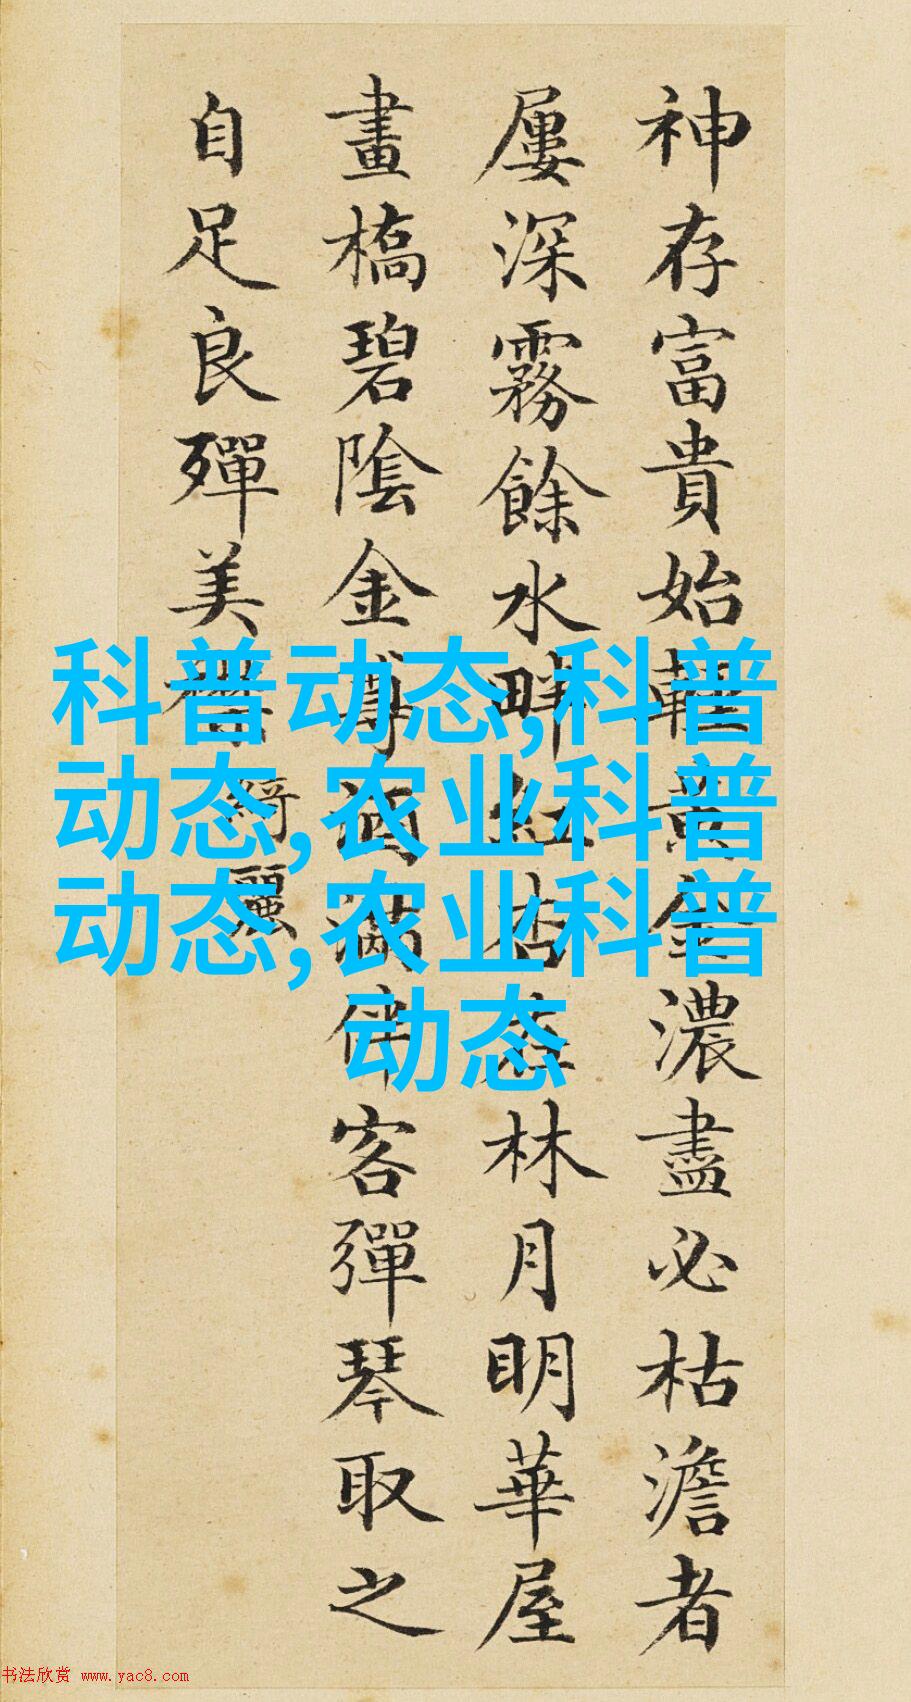 神存富貴始輕黃金濃盡必枯澹者
屢深霧餘水畔紅杏在林月明華屋
畫橋碧陰金酒滿伴客彈琴取之
自足良殫美襟
綺麗
科普动态,科普
动态,农业科普
动态,农业科普
动态
书法欣赏 www.yac8.com